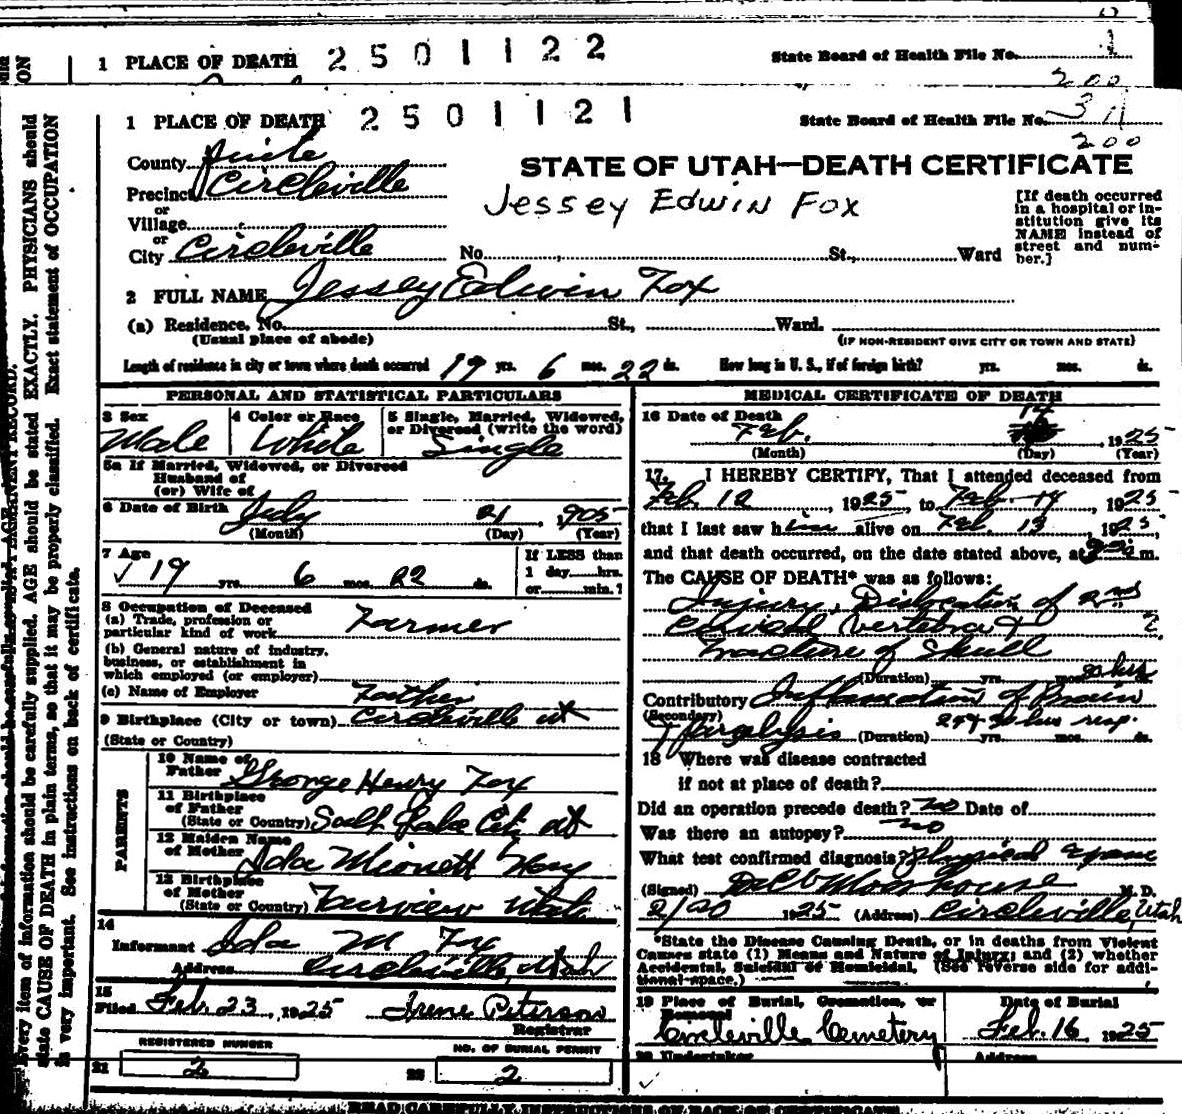 1 PLACE OF DEATH 2501122 State Board of Health File No. 1
200
1 PLACE OF DEATH 2501121 State Board of Health File No. 3
200
County Piute
STATE OF UTAH—DEATH CERTIFICATE
Precinct Circleville
Jessey Edwin Fox
or
Village
or
City Circleville No. St., Ward
[If death occurred
in a hospital or in-
stitution give its
NAME instead of
street and num-
ber.]
2 FULL NAME Jessey Edwin Fox
(a) Residence. No. St., Ward.
(Usual place of abode) (IF NON-RESIDENT GIVE CITY OR TOWN AND STATE)
Length of residence in city or town where death occurred 19 yrs. 6 mos. 22 ds. How long in U. S., if of foreign birth? yrs. mos. ds.
PERSONAL AND STATISTICAL PARTICULARS
3 Sex Male
4 Color or Race White
5 Single, Married, Widowed,
or Divorced (write the word)
Single
5a If Married, Widowed, or Divorced
Husband of
(or) Wife of
6 Date of Birth July 21, 1905
(Month) (Day) (Year)
7 Age
19 yrs. 6 mos. 22 ds.
If LESS than
1 day hrs.
or min.?
8 Occupation of Deceased
(a) Trade, profession or
particular kind of work Farmer
(b) General nature of industry,
business, or establishment in
which employed (or employer)
(c) Name of Employer Father
9 Birthplace (City or town) Circleville ut
(State or Country)
PARENTS
10 Name of
Father George Henry Fox
11 Birthplace
of Father
(State or Country) Salt Lake City ut
12 Maiden Name
of Mother Ida
13 Birthplace
of Mother
(State or Country) Fairview Utah
14
Informant Ida M Fox
Address Circleville, Utah
15
Filed Feb. 23, 1925 Irene Peterson
Registrar
REGISTERED NUMBER
21 2
NO. OF BURIAL PERMIT
22 2
MEDICAL CERTIFICATE OF DEATH
16 Date of Death
Feb. 14, 1925
(Month) (Day) (Year)
17. I HEREBY CERTIFY, That I attended deceased from
Feb. 12, 1925, to Feb. 14, 1925
that I last saw him alive on Feb. 13, 1925,
and that death occurred, on the date stated above, at m.
The CAUSE OF DEATH* was as follows:
Injury, Dislocation of 2nd
Cervical Vertebra &
Fracture of Skull
(Duration) yrs. mos. hrs
Contributory Inflamation of Brain
(Secondary)
& Paralysis (Duration) yrs. mos. ds.
18 Where was disease contracted
if not at place of death?
Did an operation precede death? no Date of
Was there an autopsy? no
What test confirmed diagnosis? Physical Exam
(Signed) M. D.
2/20 1925 (Address) Circleville, Utah
*State the Disease Causing Death, or in deaths from Violent
Causes state (1) Means and Nature of Injury; and (2) whether
Accidental, Suicidal or Homicidal. (See reverse side for addi-
tional space.)
19 Place of Burial, Cremation, or
Removal
Circleville Cemetery
Date of Burial
Feb. 16, 1925
20 Undertaker Address
READ CAREFULLY INSTRUCTIONS ON BACK OF CERTIFICATE
Every item of information should be carefully supplied. AGE should be stated EXACTLY. PHYSICIANS should
state CAUSE OF DEATH in plain terms, so that it may be properly classified. Exact statement of OCCUPATION
is very important. See instructions on back of certificate.